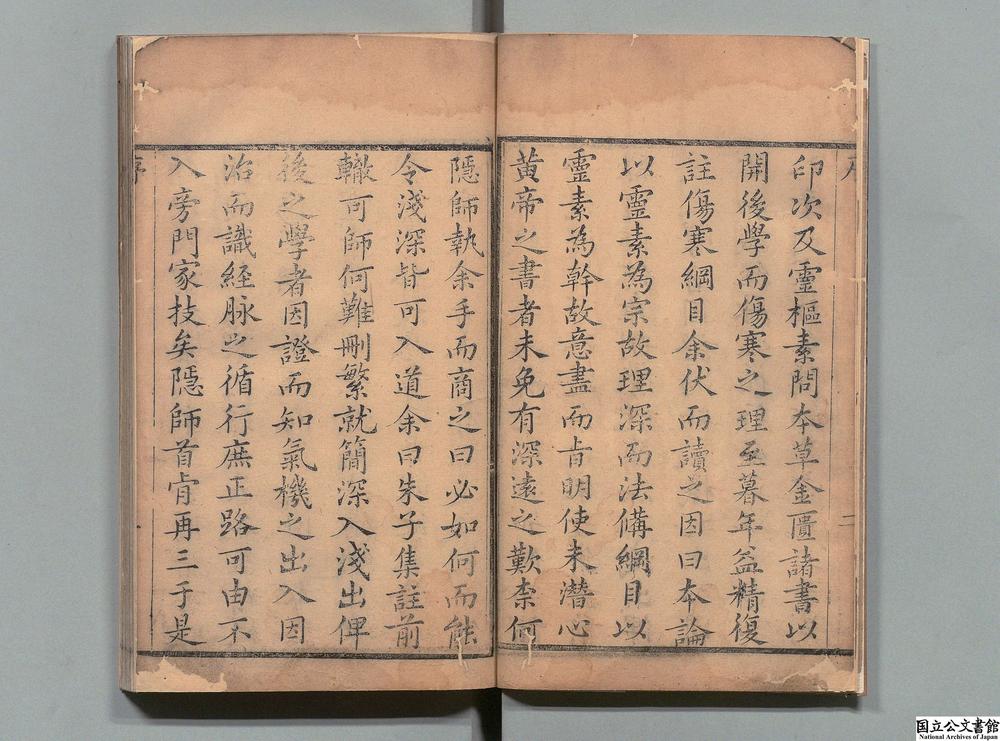 印次及靈樞素問本草金匱諸書以
開後學而傷寒之理至暮年益精復
註傷寒綱目余伏而讀之因曰本論
以靈素為宗故理深而法備綱目以
靈素為幹故意盡而旨明使未潛心
黃帝之書者未免有深遠之歎柰何
隱師執余手而商之曰必如何而能
令淺深皆可入道余曰朱子集註前
轍可師何難刪繁就簡深入淺出俾
後之學者因證而知氣機之出入因
治而識經脉之循行庶正路可由不
入旁門家技矣隱師首肯再三于是
序
二
国立公文書館
National Archives of Japan